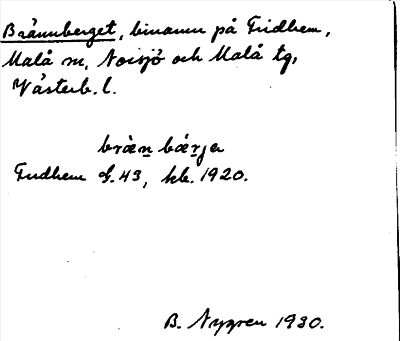 Brännberget, binamn på Fridhem,
Malå sn, Norsjö och Malå tg,
Västerb. l.
bræ̀n bæ̀rjə
Fridhem f. 43, kb. 1920.
B. Nygren 1930.